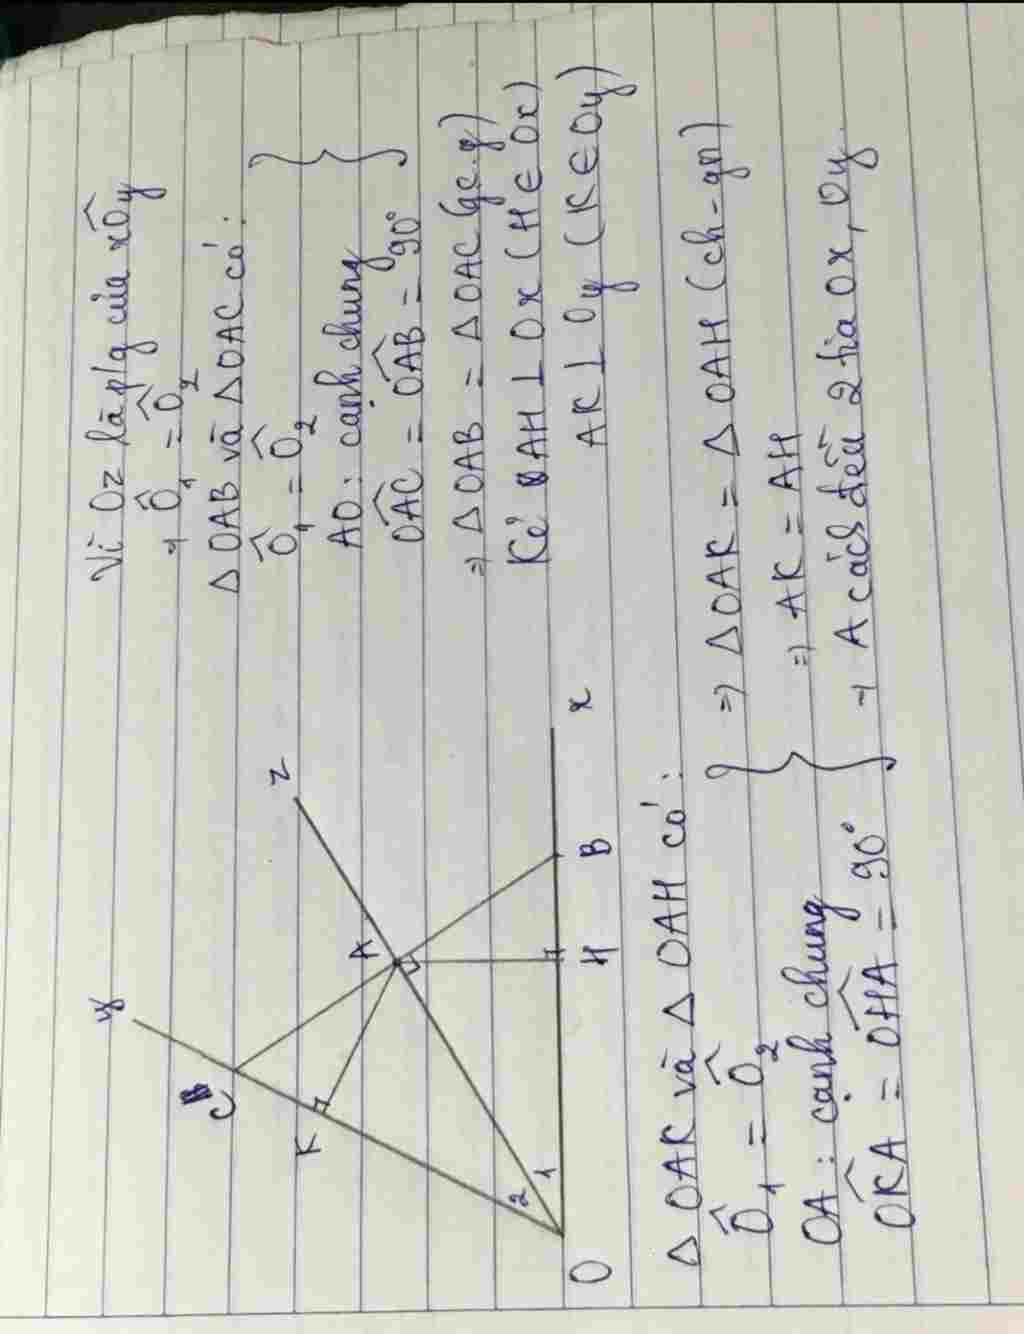 Vì Oz là p/g của xÔy
→ Ô₁ = Ô₂
Δ OAB và Δ OAC có:
Ô₁ = Ô₂
AO: cạnh chung
OÂC = OÂB = 90°
⇒ Δ OAB = Δ OAC (gc.g)
Kẻ AH ⊥ Ox (H ∈ Ox)
AK ⊥ Oy (K ∈ Oy)
y
z
C
A
K
2
1
O
H
B
x
Δ OAK và Δ OAH có:
Ô₁ = Ô₂
OA: cạnh chung
OK̂A = OĤA = 90°
⇒ Δ OAK = Δ OAH (ch-gn)
⇒ AK = AH
→ A cách đều 2 tia Ox, Oy.